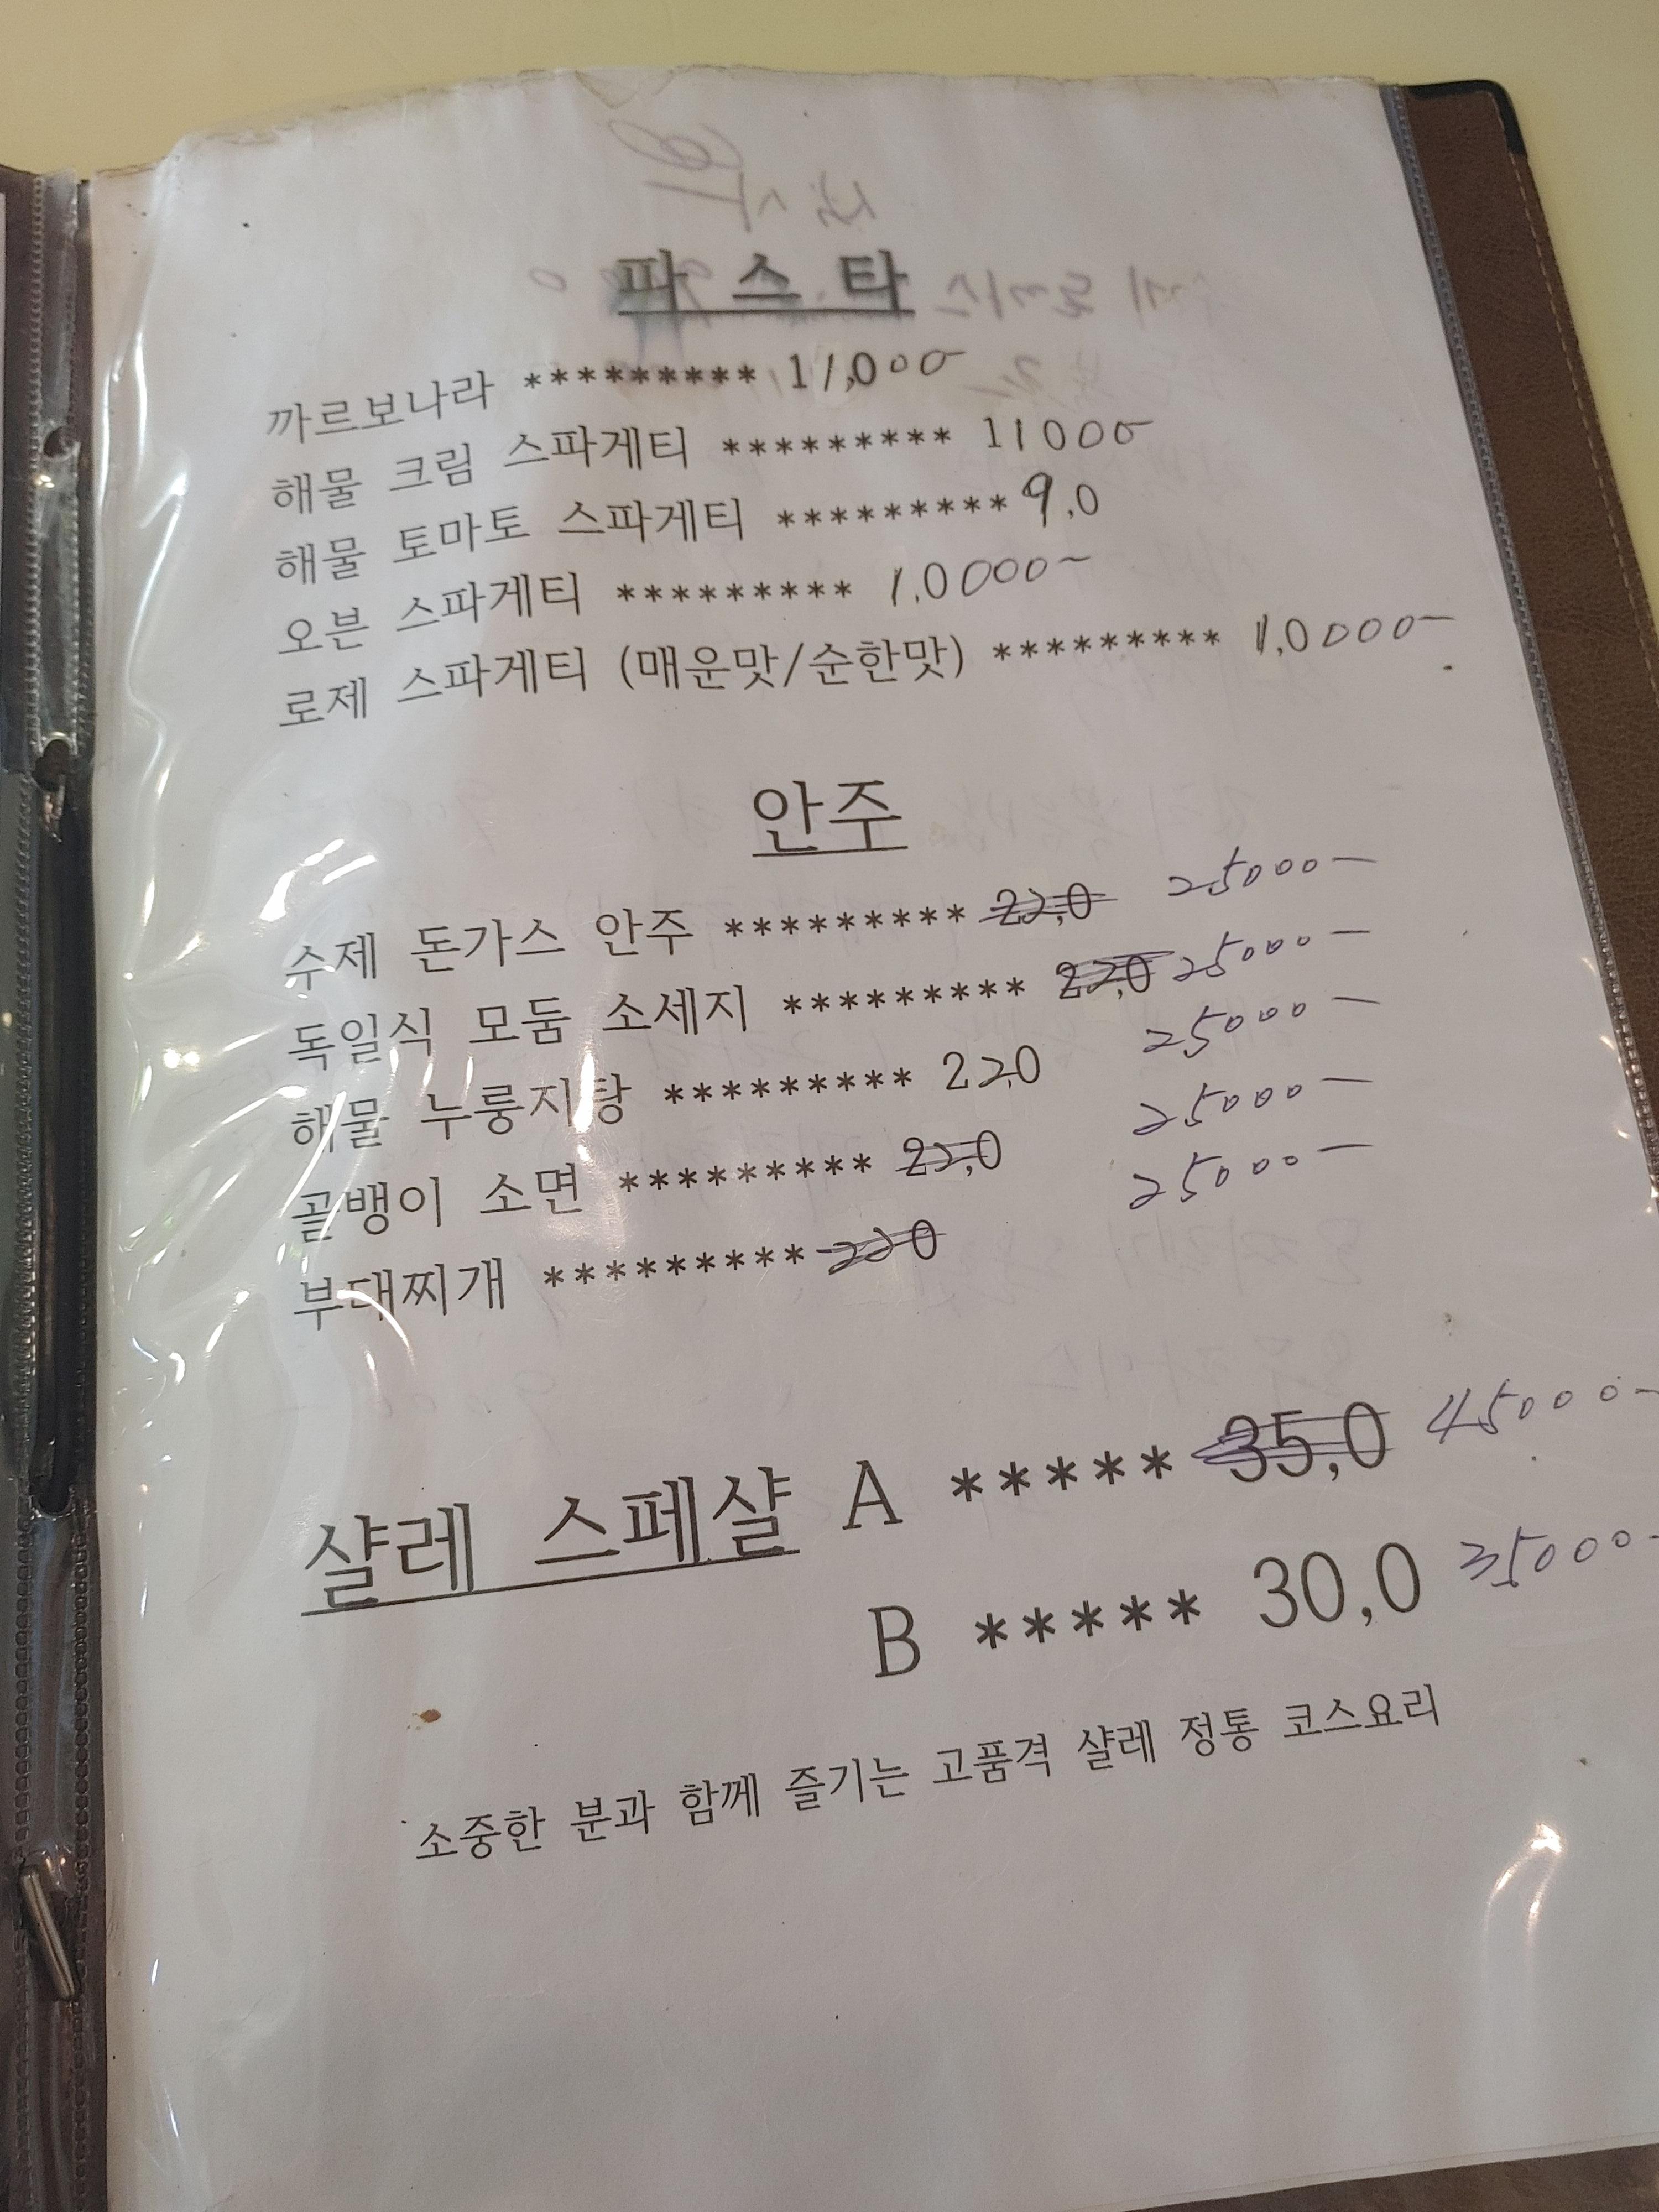 파 스 타
까르보나라 ********* 11,000-
해물 크림 스파게티 ********* 11000-
해물 토마토 스파게티 ********* 9,0
오븐 스파게티 ********* 1,0000-
로제 스파게티 (매운맛/순한맛) ********* 1,0000-
안주
수제 돈가스 안주 ********* 22,0 25000-
독일식 모둠 소세지 ********* 22,0 25000-
해물 누룽지탕 ********* 22,0 25000-
골뱅이 소면 ********* 22,0 25000-
부대찌개 ********* 22,0 25000-
샬레 스페샬 A ***** 35,0 45000-
B ***** 30,0 35000-
소중한 분과 함께 즐기는 고품격 샬레 정통 코스요리